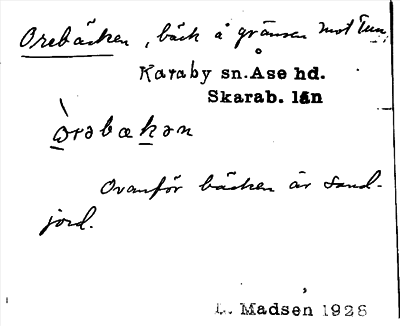 Orebäcken, bäck å gränsen mot Tun,
Karaby sn. Åse hd.
Skarab. län
òrəbækən
Ovanför bäcken är sand-
jord.
L. Madsén 1926